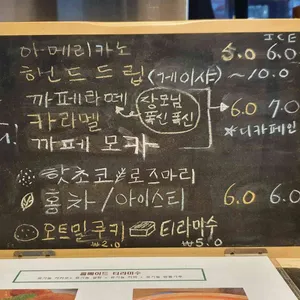 ICE
아메리카노 5.0 6.0
핸드드립(게이샤) ~10.0
까페라떼
카라멜
까페 모카
장모님
푹신푹신
6.0 7.0
*디카페인
핫초코/로즈마리
홍차/아이스티 6.0 6.0
오트밀쿠키 ₩2.0
티라미수 ₩5.0
홈메이드 티라미수